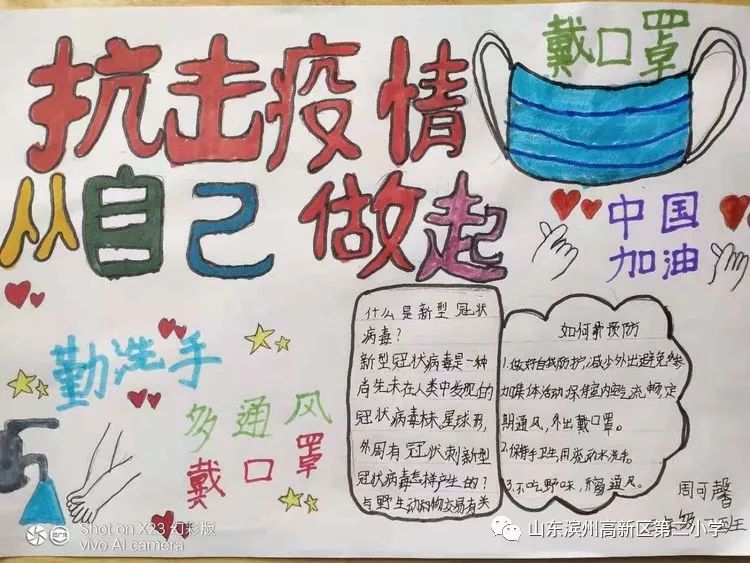 抗击疫情
从自己做起
戴口罩
中国
加油
勤洗手
多通风
戴口罩
什么是新型冠状
病毒?
新型冠状病毒是一种
尚先未在人类中发现的
冠状病毒株,呈球形,
外周有冠状刺新型
冠状病毒怎样产生的?
与野生动物交易有关
如何预防
1.做好自我防护,减少外出避免参
加集体活动保持室内空气流畅,定
期通风,外出戴口罩。
2.保持手卫生,用流动水洗手。
3.不吃野味,多通风。
周可馨
级
班
Shot on X23 幻彩版
vivo AI camera
山东滨州高新区第二小学